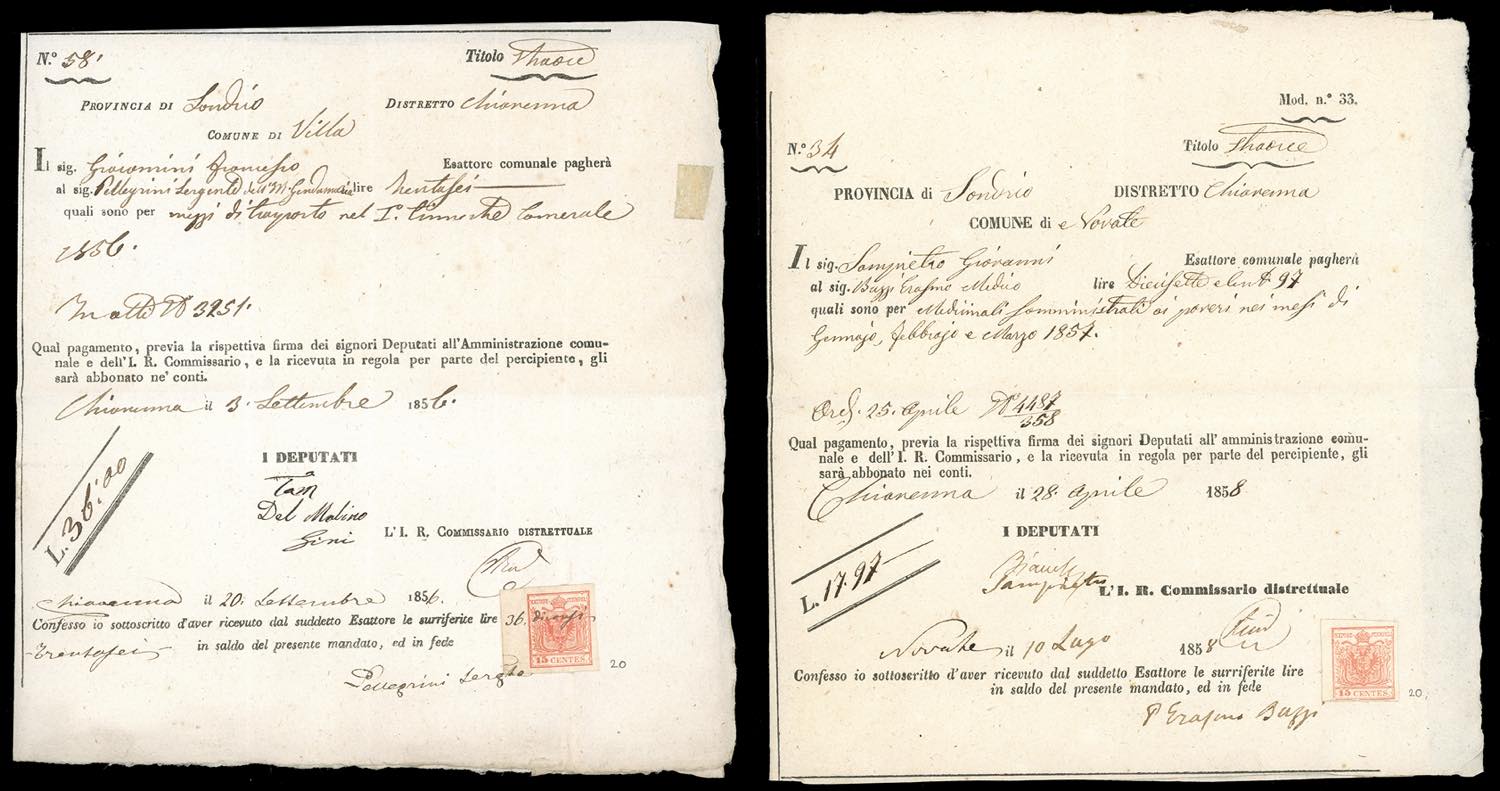 N.º 58.
Titolo
PROVINCIA DI Sondrio DISTRETTO Chiavenna
COMUNE DI Villa
Il sig. Giacomini Francesco Esattore comunale pagherà
al sig. Pellegrini Sergente dell' lire trentasei
quali sono per mezzi di trasporto nel I.º Camerale
1856.
In atti Nº 3251.
Qual pagamento, previa la rispettiva firma dei signori Deputati all'Amministrazione comu-
nale e dell'I. R. Commissario, e la ricevuta in regola per parte del percipiente, gli
sarà abbonato ne' conti.
Chiavenna il 3. Settembre 1856.
L. 36:00
I DEPUTATI
Tam
Del Molino
Gini
L'I. R. COMMISSARIO DISTRETTUALE
Chiavenna il 20. Settembre 1856.
Confesso io sottoscritto d'aver ricevuto dal suddetto Esattore le surriferite lire 36.
Trentasei in saldo del presente mandato, ed in fede
KKPOST-STEMPEL
15 CENTES.
20
Pellegrini Sergte
Mod. n.º 33.
N.º 34
Titolo
PROVINCIA di Sondrio DISTRETTO Chiavenna
COMUNE di Novate
Il sig. Sampietro Giovanni Esattore comunale pagherà
al sig. Bazzi Erasmo Medico lire Diciasette e Cent 97
quali sono per Medicinali somministrati ai poveri nei mesi di
Gennajo, febbrajo e Marzo 1857.
25. Aprile Nº 4487/358
Qual pagamento, previa la rispettiva firma dei signori Deputati all'amministrazione comu-
nale e dell'I. R. Commissario, e la ricevuta in regola per parte del percipiente, gli
sarà abbonato nei conti.
Chiavenna il 28. Aprile 1858
L. 17.97
I DEPUTATI
Sampietro
L'I. R. Commissario distrettuale
Novate il 10 Lugo 1858
Confesso io sottoscritto d'aver ricevuto dal suddetto Esattore le surriferite lire
in saldo del presente mandato, ed in fede
KKPOST-STEMPEL
15 CENTES
20.
Erasmo Bazzi